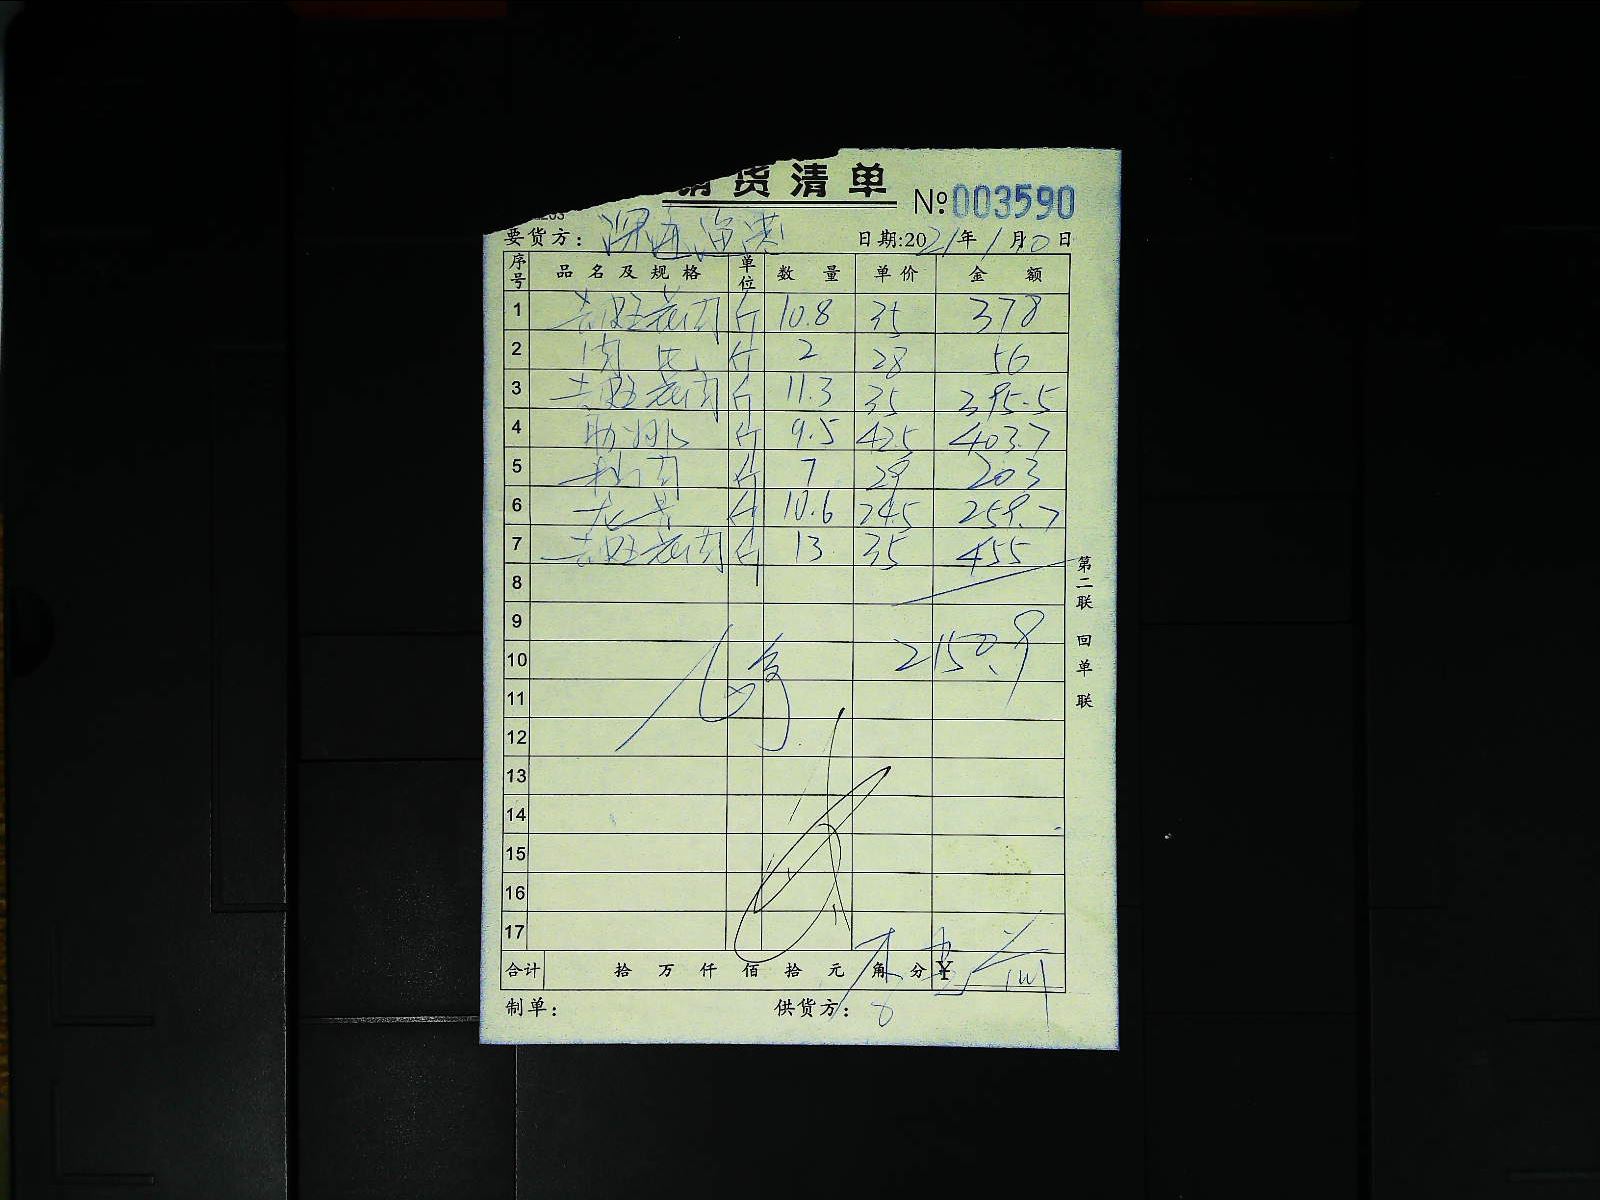 销货清单
№003590
要货方: 日期:2021年1月0日
序号 品名及规格 单位 数量 单价 金额
1 去皮花肉 斤 10.8 35 378
2 肉 斤 2 28 56
3 去皮花肉 斤 11.3 35 395.5
4 肋排 斤 9.5 42.5 403.7
5 肉 斤 7 29 203
6 龙骨 斤 10.6 24.5 259.7
7 去皮花肉 斤 13 35 455
8
9
10 2150.9
11
12
13
14
15
16
17
合计 拾万仟佰拾元角分 ¥
制单: 供货方:
第二联 回单联